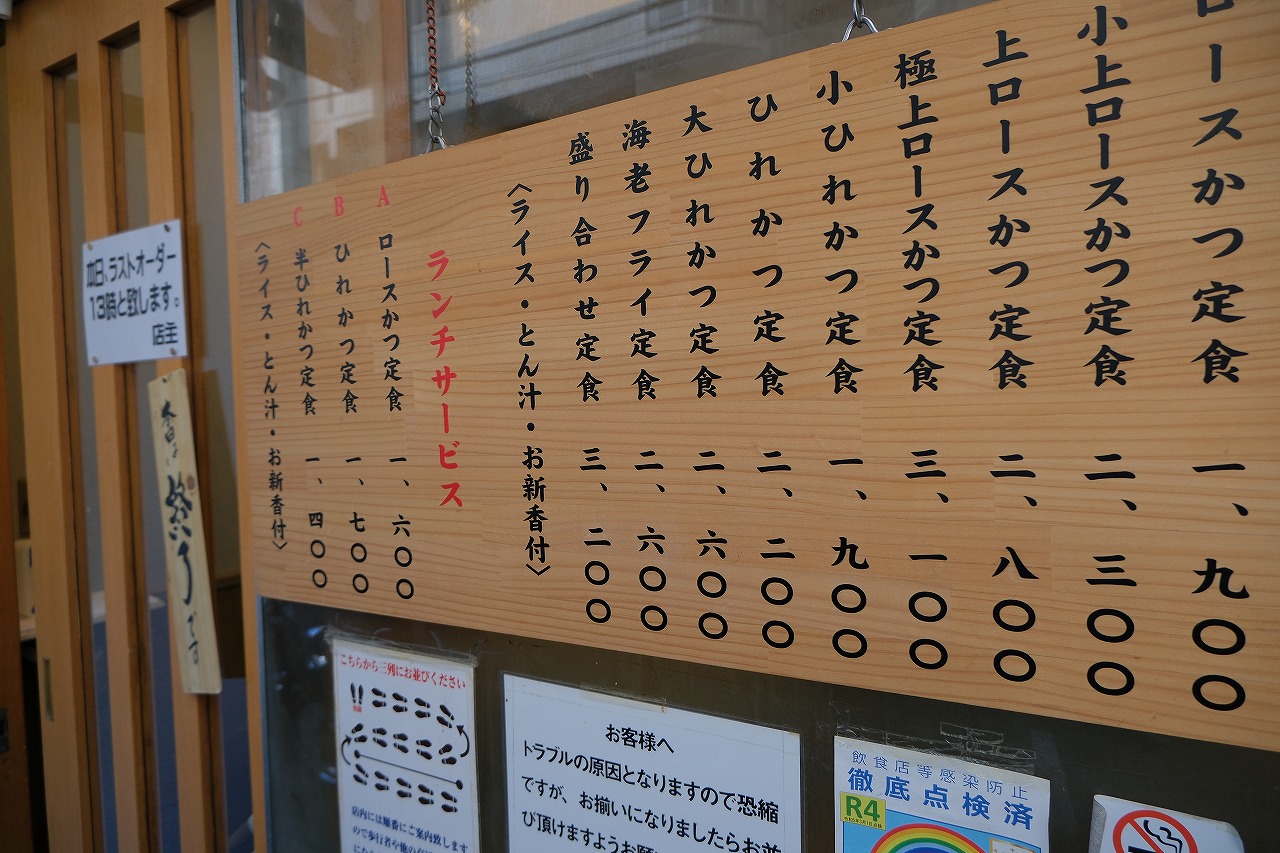 ロースかつ定食 一、九〇〇
小上ロースかつ定食 二、三〇〇
上ロースかつ定食 二、八〇〇
極上ロースかつ定食 三、一〇〇
小ひれかつ定食 一、九〇〇
ひれかつ定食 二、二〇〇
大ひれかつ定食 二、六〇〇
海老フライ定食 二、六〇〇
盛り合わせ定食 三、二〇〇
〈ライス・とん汁・お新香付〉
ランチサービス
A ロースかつ定食 一、六〇〇
B ひれかつ定食 一、七〇〇
C 半ひれかつ定食 一、四〇〇
〈ライス・とん汁・お新香付〉
本日、ラストオーダー
13時と致します。
店主
終了です
こちらから三列にお並びください
店内には順番にご案内致します
ので歩行者や他の
お客様へ
トラブルの原因となりますので恐縮
ですが、お揃いになりましたらお並
び頂けますようお願
飲食店等感染防止
徹底点検済
R4